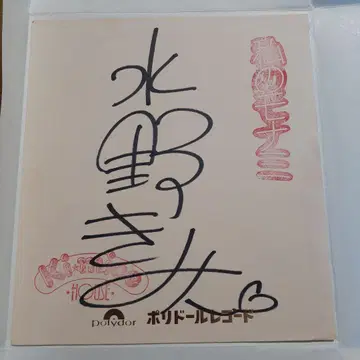 私のモナミ
水野きみこ
HOUSE
polydor ポリドールレコード